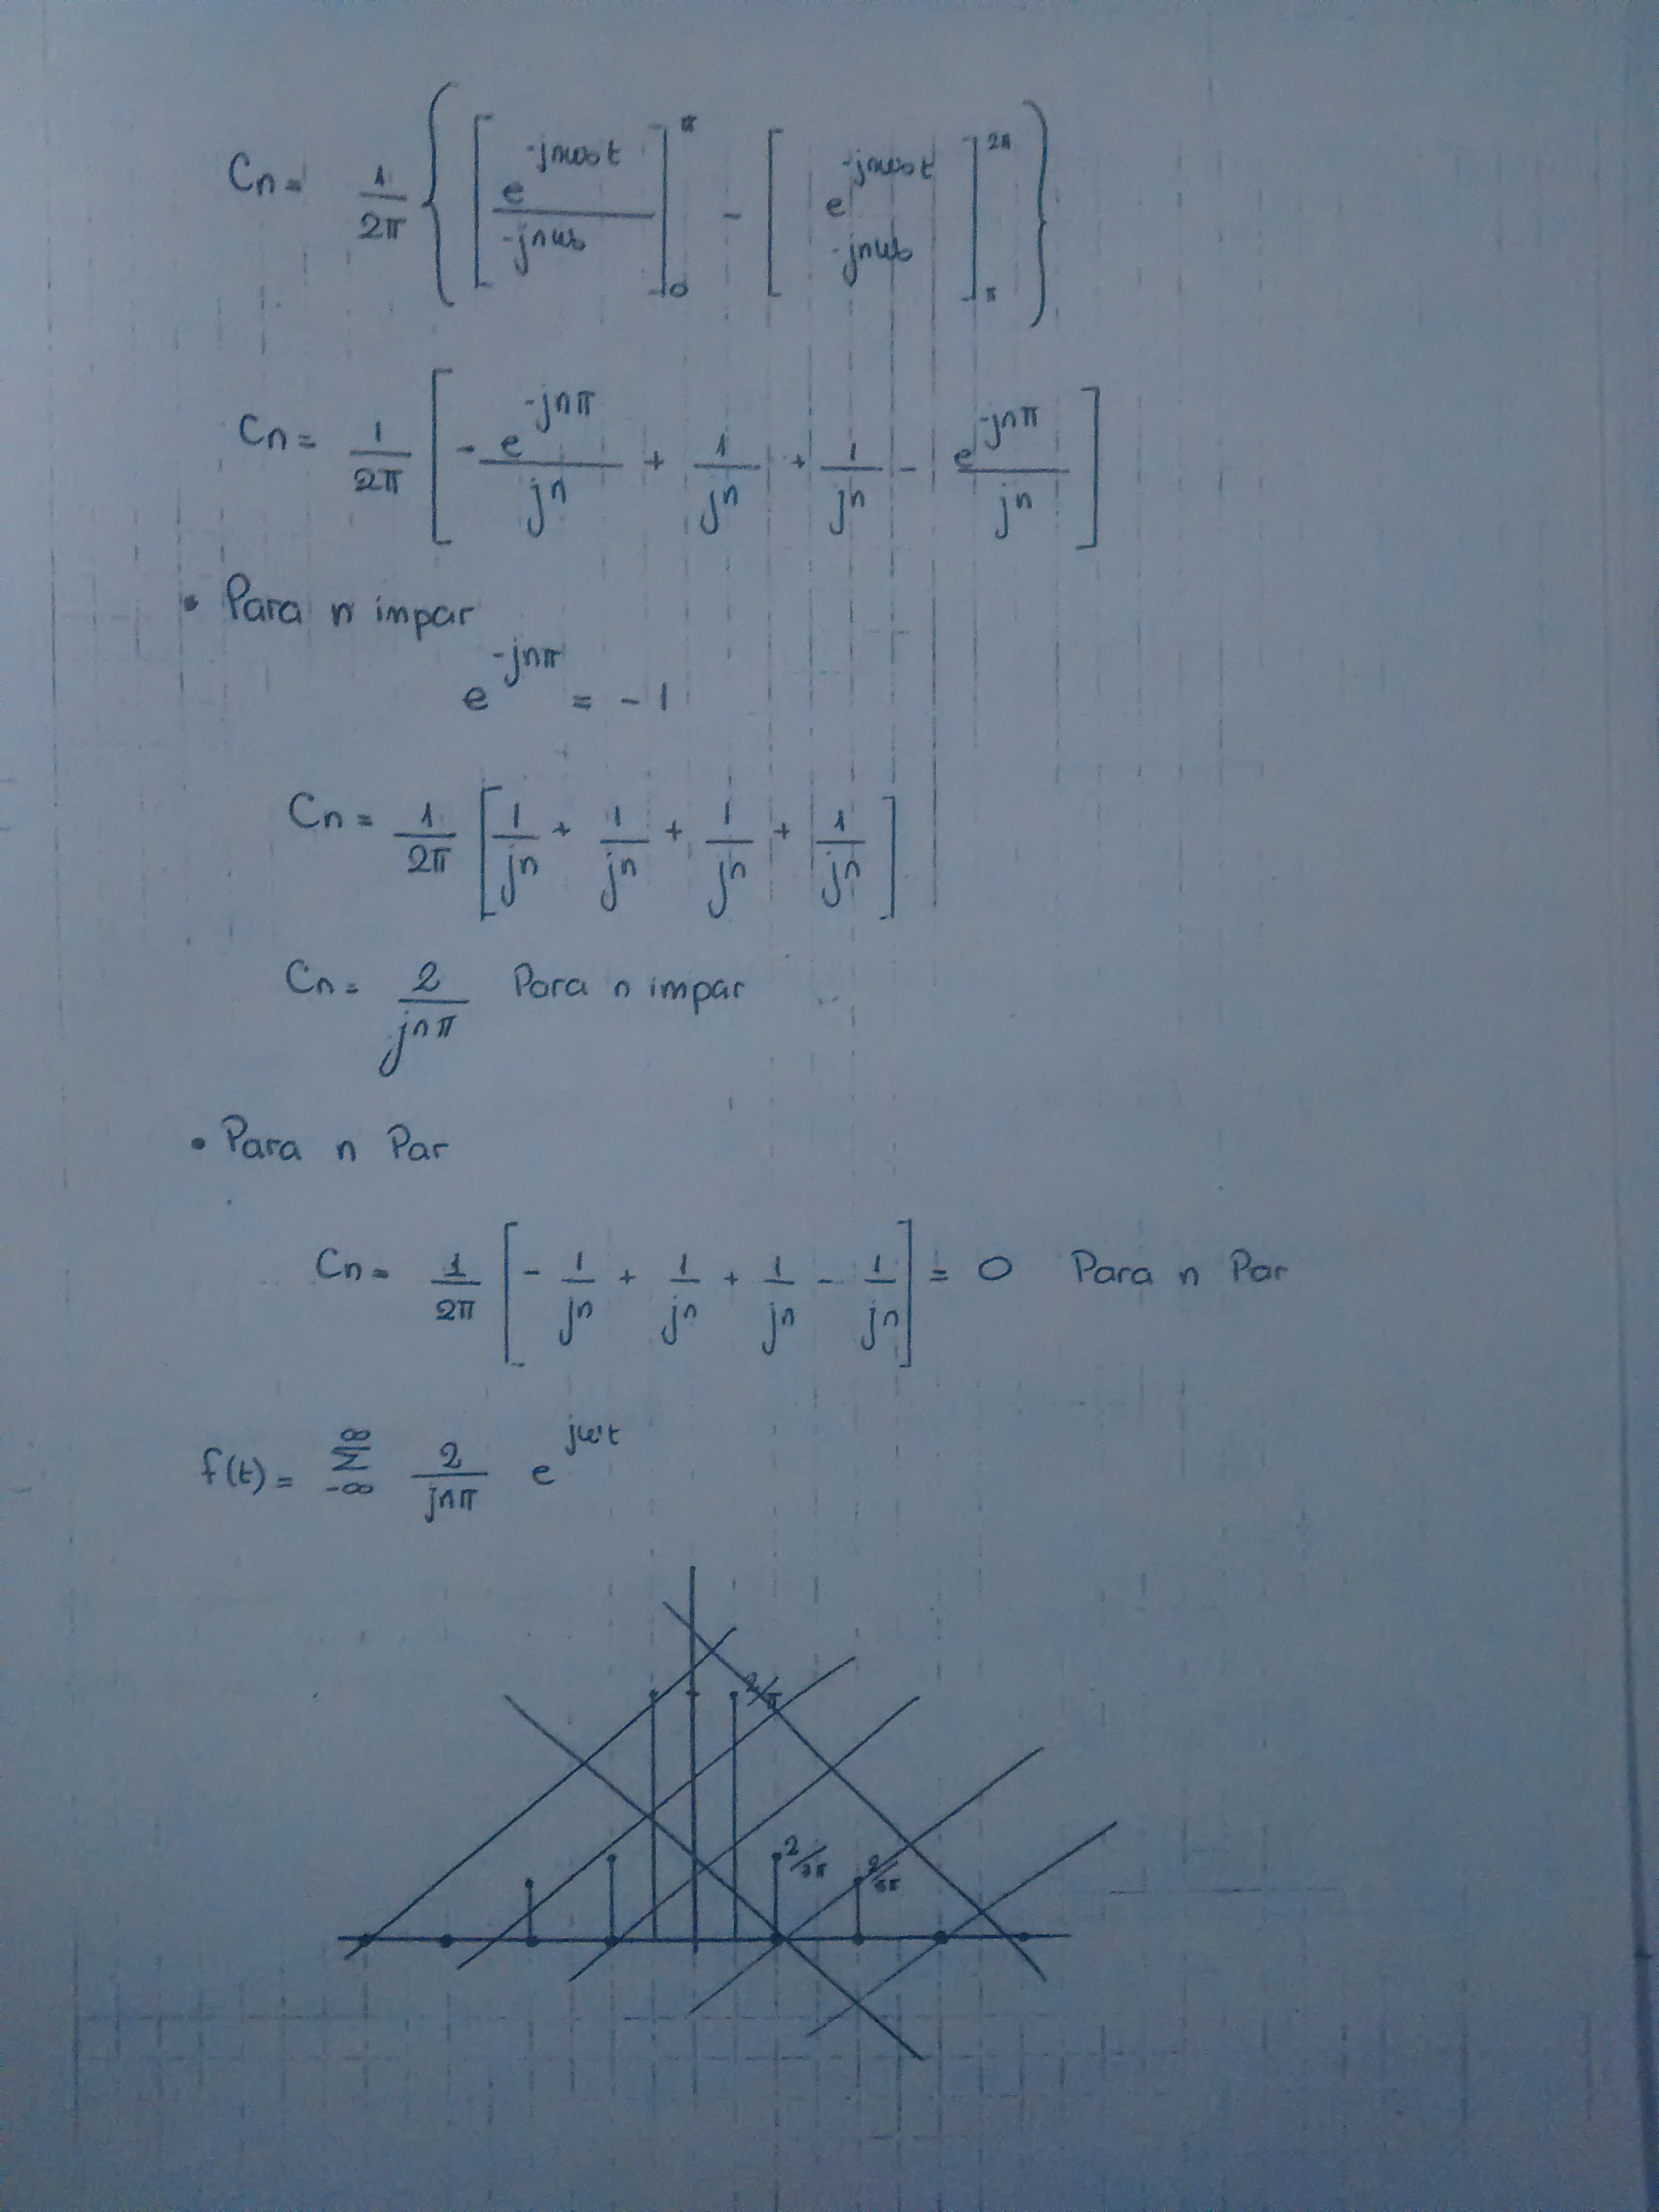 Cn = 1/2π { [ e^-jnω₀t / -jnω₀ ]₀^π - [ e^-jnω₀t -jnω₀ ]π^2π }
Cn = 1/2π [ - e^-jnπ / jn + 1/jn + 1/jn - e^-jnπ / jn ]
• Para n impar
e^-jnπ = - 1
Cn = 1/2π [ 1/jn + 1/jn + 1/jn + 1/jn ]
Cn = 2/jnπ Para n impar
• Para n Par
Cn = 1/2π [ - 1/jn + 1/jn + 1/jn - 1/jn ] = 0 Para n Par
f(t) = ∞ Σ -∞ 2/jnπ e^jωt
2/π
2/3π